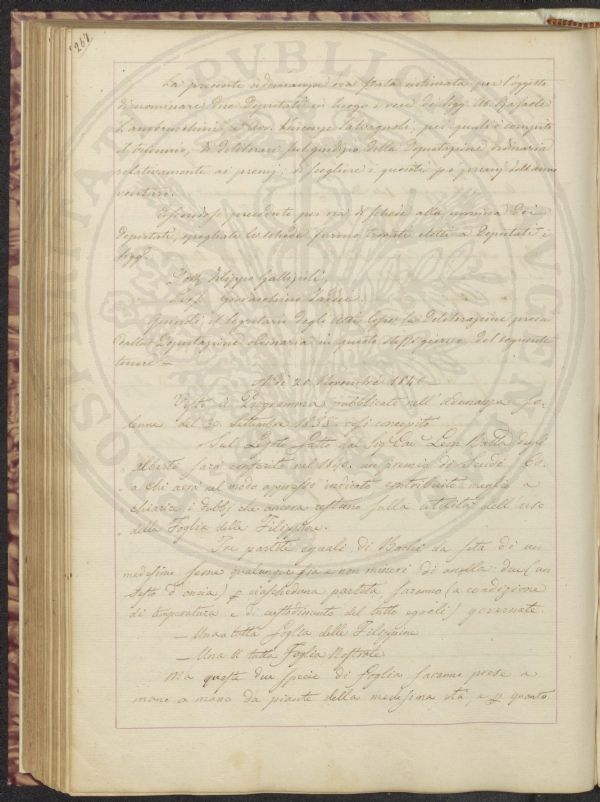 267.
PVBLICAE PROSPERITATI AVGENDAE
La presente adunanza era stata intimata per l'oggetto
di nominare due Deputati in luogo e vece dei Sigg. Ab. Raffaele
Lambruschini, e Avv. Vincenzo Salvagnoli, pei quali è compito
il biennio, di deliberare sul giudizio della Deputazione ordinaria
relativamente ai premj; di scegliere i quesiti pei premj dell'anno
venturo.
Essendosi proceduto per via di schede alla nomina dei
Deputati, spogliate le schede furono trovati eletti a Deputati i
Sigg.
Dott. Filippo Gallizioli
Prof. Gioacchino Taddei
quindi il Segretario degli Atti lesse la deliberazione presa
dalla Deputazione ordinaria in questo stesso giorno del seguente
tenore =
A dì 20 Novembre 1840 =
Visto il Programma pubblicato nell'adunanza so-
lenne del 30 Settembre 1838 così concepito
Sul Lascito fatto dal Sig. Cav. Leon Batta
Alberti sarà conferito nel 1840 un premio di Scudi 60.
a chi avrà nel modo appresso indicato contribuito meglio a
chiarire i dubbj che ancora restano sulla utilità dell'uso
della Foglia delle Filippine.
Tre partite eguali di Bachi da seta di un
medesimo seme qualunque sia e non minori di due (un
sesto d'oncia) p ciascheduna partita saranno (a condizione
di temperatura e di custodimento del tutto eguali) governate
— Una a tutta foglia delle Filippine
— Una a tutta Foglia Nostrale
Ma queste due specie di foglia saranno prese a
mano a mano da piante della medesima età, e p quanto